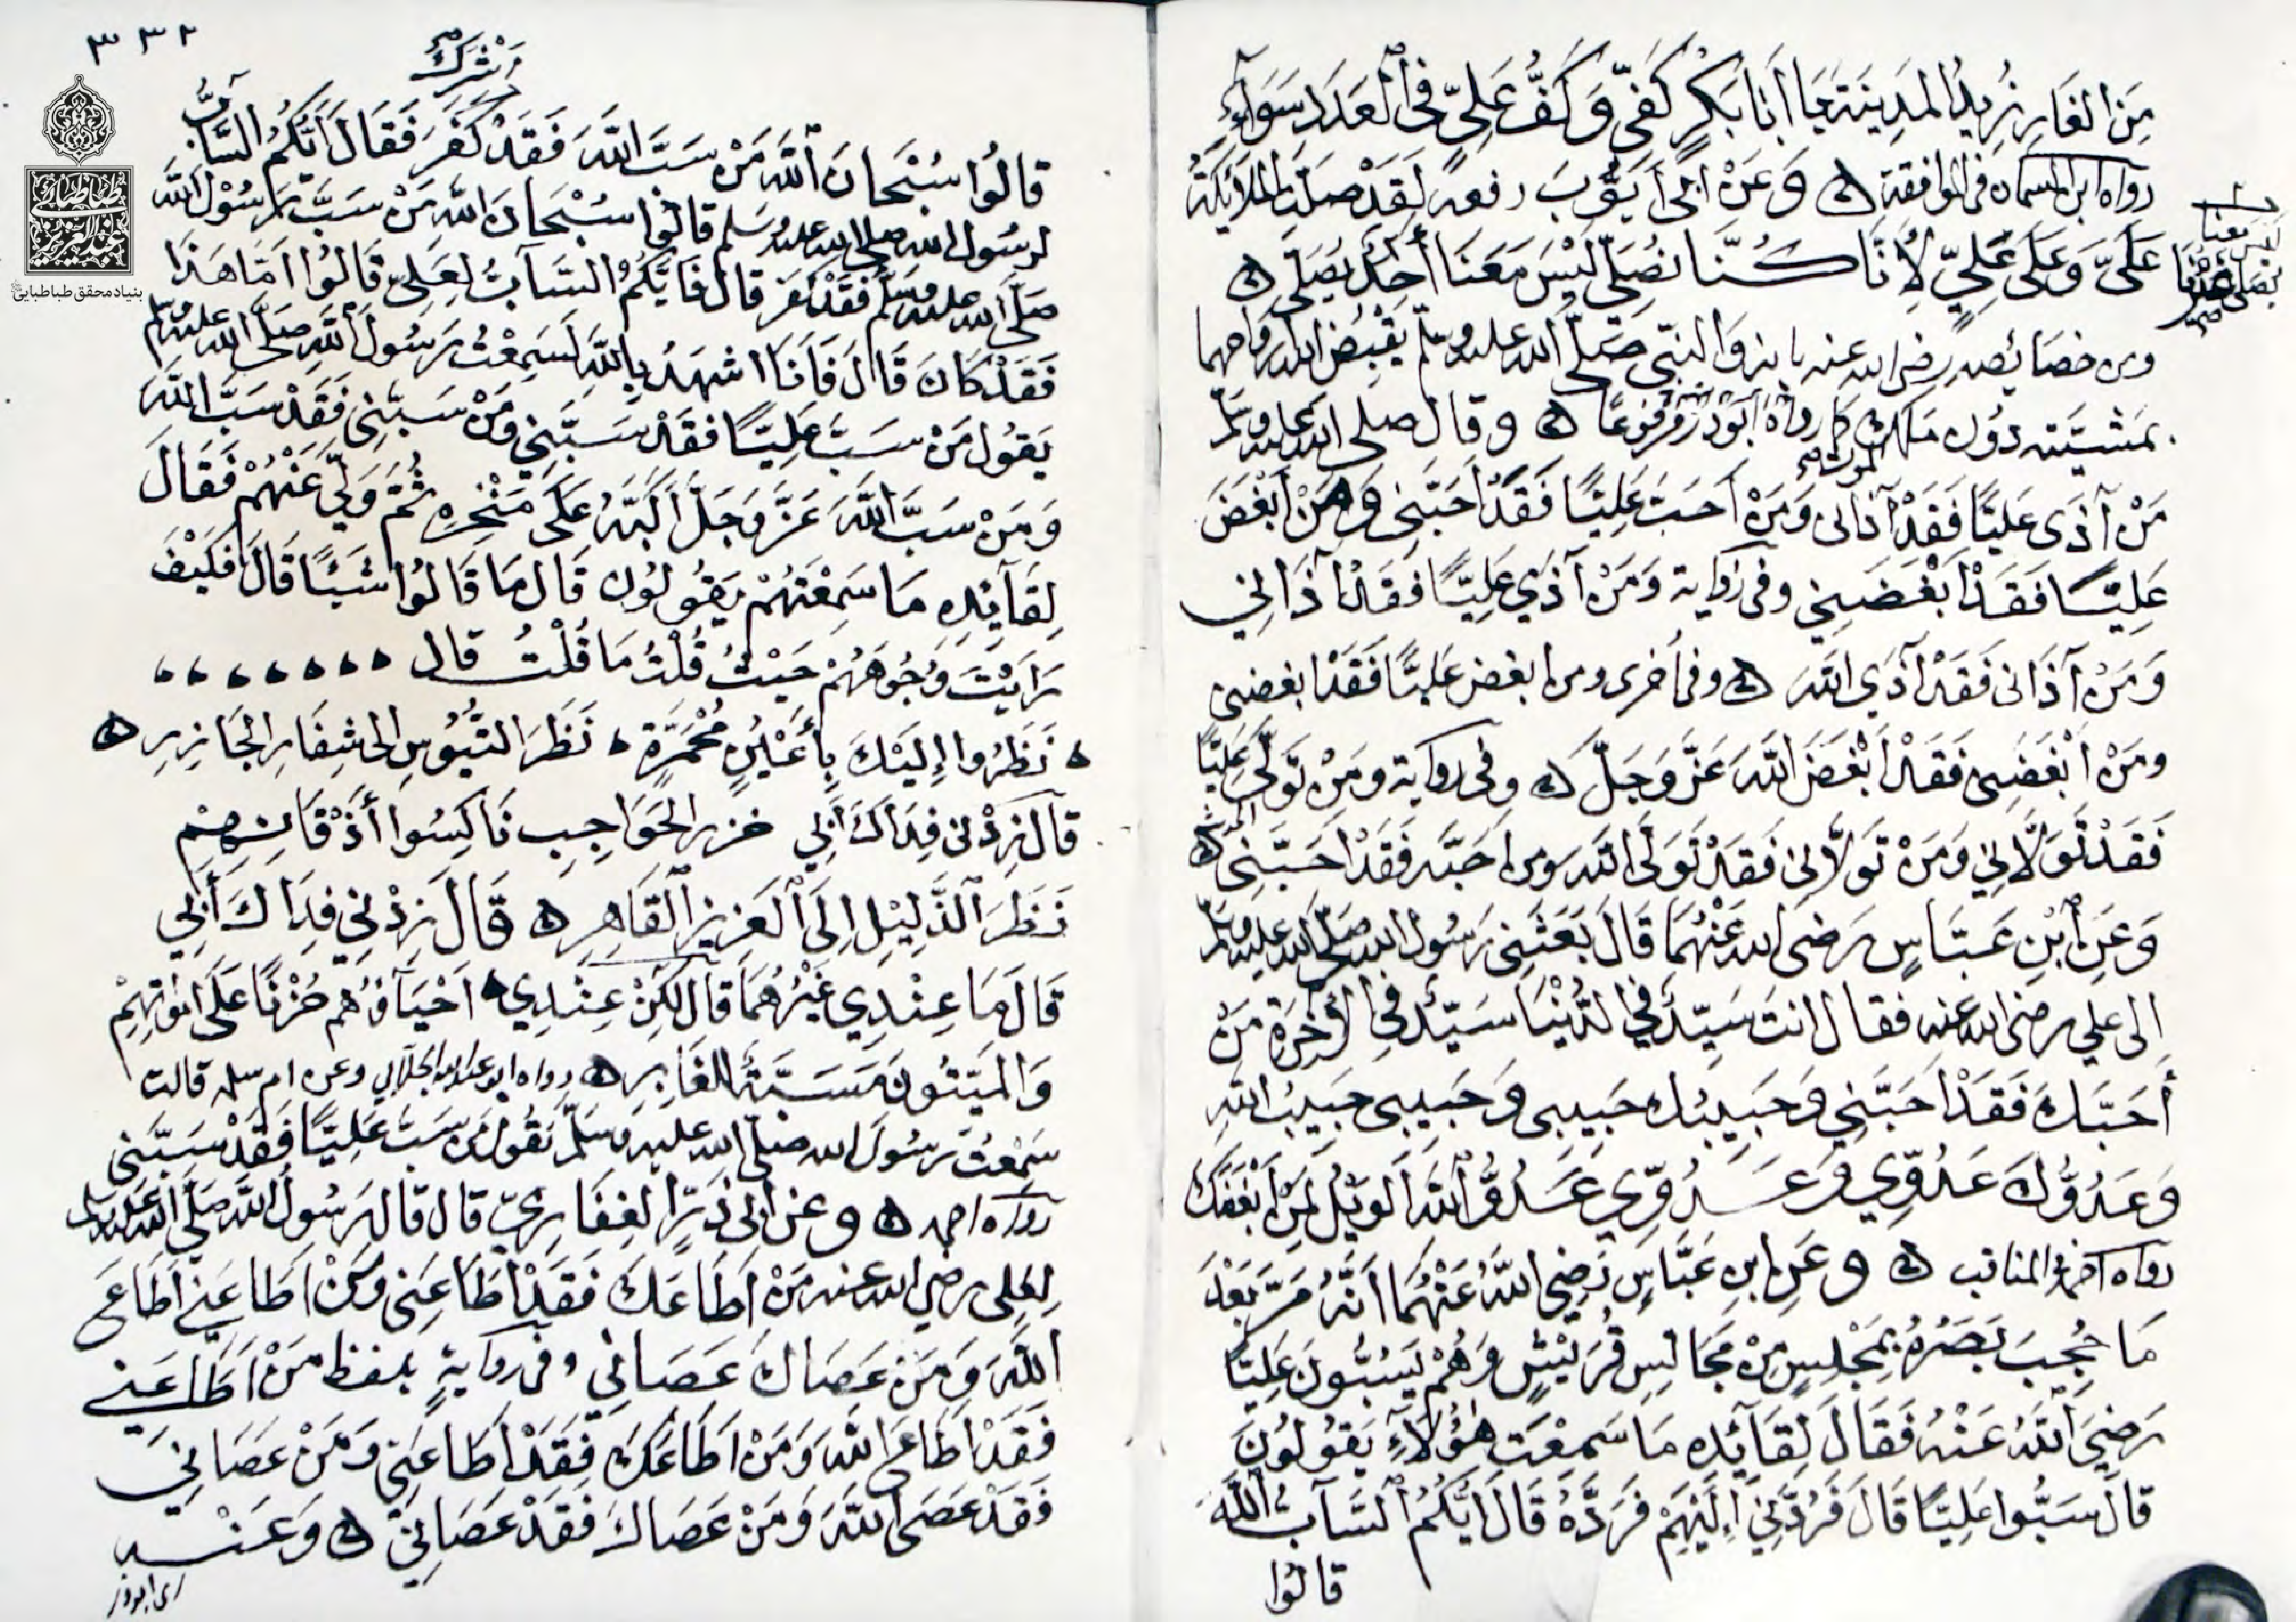 مِنَ الغَارِ نُرِيدُ المَدِينَةَ يَا أَبَا بَكْرٍ كَفِّي وَكَفُّ عَلِيٍّ فِي ٱلْعَدَدِ سَوَآءٌ
رواه ابن السمان فى الموافقة ۞ وَعَنْ ابى أَيُّوبَ رفعه لَقَدْ صَلَّتِ المَلَائِكَةُ
عَلَيَّ وَعَلَى عَلِيٍّ لِأَنَّا كُنَّا نُصَلِّي لَيْسَ مَعَنَا أَحَدٌ يُصَلِّي ۞
ليس معنا
يصلى غيرنا
ومن خصائصه رضى الله عنه بانه والنبى صَلَّى الله عليه وسلم يَقْبِضُ الله ارواحهما
بمشيَّته دُون ملك الموت كما رواه أَبُوذَرّ مرفوعًا ۞ وقال صلى الله عليه وسلم
مَنْ آذَى عَلِيًّا فَقَدْ آذانى وَمَنْ اَحَبَّ عَلِيًّا فَقَدْ اَحَبَّنِى وَمَنْ أَبْغَضَ
عَلِيًّا فَقَدْ اَبْغَضَنِي وفى رواية وَمَنْ آذَي عَلِيًّا فَقَدْ آذَانِي
وَمَنْ آذَانى فَقَدْ آذَى اللَّهَ ۞ وفى أُخرى ومن ابغض عَلِيًّا فَقَدْ ابغضنى
ومَنْ اَبْغَضَنِى فَقَدْ اَبْغَضَ اللَّهَ عَزَّ وَجَلَّ ۞ وفى رواية ومَنْ تَوَلَّى عَلِيًّا
فَقَدْ تَوَلَّانِي وَمَنْ تَوَلَّانِى فَقَدْ تَوَلَّى اللَّه ومن احَبَّه فَقَدْ اَحَبَّنِى ۞
وَعَنِ ٱبْنِ عَبَّاسٍ رَضى الله عَنْهُمَا قَالَ بَعَثَنِى رَسُول الله صَلَّى الله عليه وسلم
إلى علي رضى الله عنه فقال انتَ سَيِّدٌ فِي الدُّنْيَا سَيِّدٌ فِي الْآخِرَةِ مَنْ
أَحَبَّكَ فَقَدْ اَحَبَّنِي وَحَبِيبُك حَبِيبِى وَحَبِيبِى حَبِيبُ اللَّهِ
وَعَدُوُّكَ عَدُوِّي وَعَدُوِّي عَدُوُّ ٱللَّهِ اَلْوَيْلُ لِمَنْ اَبْغَضَكَ
رواه احمد فى المناقب ۞ وعَنِ ابنِ عَبَّاسٍ رَضِيَ اللَّهُ عَنْهُمَا أَنَّهُ مَرَّ بَعْدَ
مَا حُجِبَ بَصَرُهُ بِمَجْلِسٍ مِنْ مَجَالِسِ قُرَيْشٍ وَهُمْ يَسُبُّونَ عَلِيًّا
رَضِيَ ٱللَّهُ عَنْهُ فَقَالَ لِقَآئِدِه مَا سَمِعْتَ هٰؤُلَاءِ يَقُولُونَ
قالَ سَبُّوا عَلِيًّا قَالَ فَرُدَّنِي إِلَيْهِمْ فَرَدَّهُ قَالَ أَيُّكُمُ ٱلسَّآبُّ اللَّهَ
قالُوا
٣٣٢
اَشْرَكَ
قالُوا سُبْحَانَ ٱللَّهِ مَنْ سَبَّ اللَّهَ فَقَدْ كَفَرَ فَقَالَ أَيُّكُمُ السَّآبُّ
لرسُول الله صلى الله عليه وسلم قالُوا سُبْحَانَ اللَّهِ مَنْ سَبَّ رَسُوْلَ اللَّهِ
صَلَّى الله عليه وسلم فَقَدْ كَفَرَ قال فَأَيُّكُمُ السَّآبُّ لِعَلِىّ قَالُوا امَّا هَذَا
فَقَدْ كَانَ قَالَ فَاَنَا اشهَدُ بِاللَّهِ لَسَمِعْتُ رَسُولَ اللَّهِ صَلَّى الله عليه وسلم
يَقُول مَنْ سَبَّ عَلِيًّا فقد سَبَّنِي وَمَنْ سَبَّنِى فَقَدْ سَبَّ اللَّهَ
وَمَنْ سَبَّ اللَّهَ عَزَّ وَجَلَّ أَكَبَّهُ عَلَى مَنْخِرِهِ ثُمَّ وَلَّى عَنْهُمْ فَقَالَ
لِقَآئِدِهِ مَا سَمِعْتَهُمْ يَقُولُون قَالَ مَا قَالُوا شَيْئًا قَالَ فَكَيْفَ
رَايْتَ وُجُوهَهُمْ حَيْثُ قُلْتُ مَا قُلْتُ قال
نَظَرُوا إِلَيْكَ بِأَعْيُنٍ مُحْمَرَّةٍ نَظَرَ التُّيُوسِ إلى شِفَارِ الجَازِرِ ۞
قال زِدْنى فِدَاكَ أَبِي خزر الحَوَاجِبِ نَاكِسُوا أَذْقَانِهِمْ
نَظَرَ الذَّلِيْلِ اِلَى ٱلْعَزِيزِ ٱلْقَاهِرِ ۞ قَالَ زِدْنِي فِدَاكَ أَبِي
قَالَ مَا عِنْدِي غَيْرُهُمَا قَالَ لَكِنْ عِنْدِي اَحْيَآؤُهُم حُزْنًا عَلَى اَمْوَاتِهِمْ
وَالمَيِّتُونَ مَسَبَّةُ الغَابِرِ ۞ رواه ابو عبد الله الجلابي وعن ام سلمه قالت
سَمِعْتُ رَسُولَ الله صَلَّى الله عليه وسَلَّمَ يَقُول مَن سَبَّ عَلِيًّا فَقَدْ سَبَّنى
رواه احمد ۞ وعَنْ ابى ذَرٍّ الغِفَارِيِّ قال قال رَسُولُ اللَّهِ صَلَّى الله عليه وسلم
لِعَلى رضى الله عنه مَنْ اَطَاعَكَ فَقَدْ اَطَاعَنِى وَمَنْ اَطَاعَنِى اَطَاعَ
اللَّهَ وَمَنْ عَصَاكَ عَصَانِي وفى روايةٍ بلفظ مَنْ اَطَاعَنِى
فَقَدْ اَطَاعَ اللَّهَ وَمَنْ اَطَاعَكَ فَقَدْ اَطَاعَنِى وَمَنْ عَصَانِي
فَقَدْ عَصَى اللَّهَ وَمَنْ عَصَاكَ فَقَدْ عَصَانِي ۞ وَعَنْهُ
اى ابوذر
بنیاد محقق طباطبایی